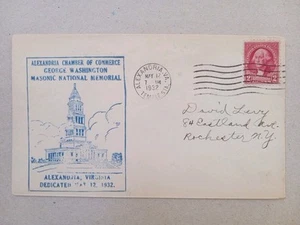 ALEXANDRIA CHAMBER OF COMMERCE
GEORGE WASHINGTON
MASONIC NATIONAL MEMORIAL
ALEXANDRIA, VIRGINIA
DEDICATED MAY 12, 1932.
ALEXANDRIA, VA.
MAY 12
1932
2
David Levy
84 Eastland Ave.
Rochester N.Y